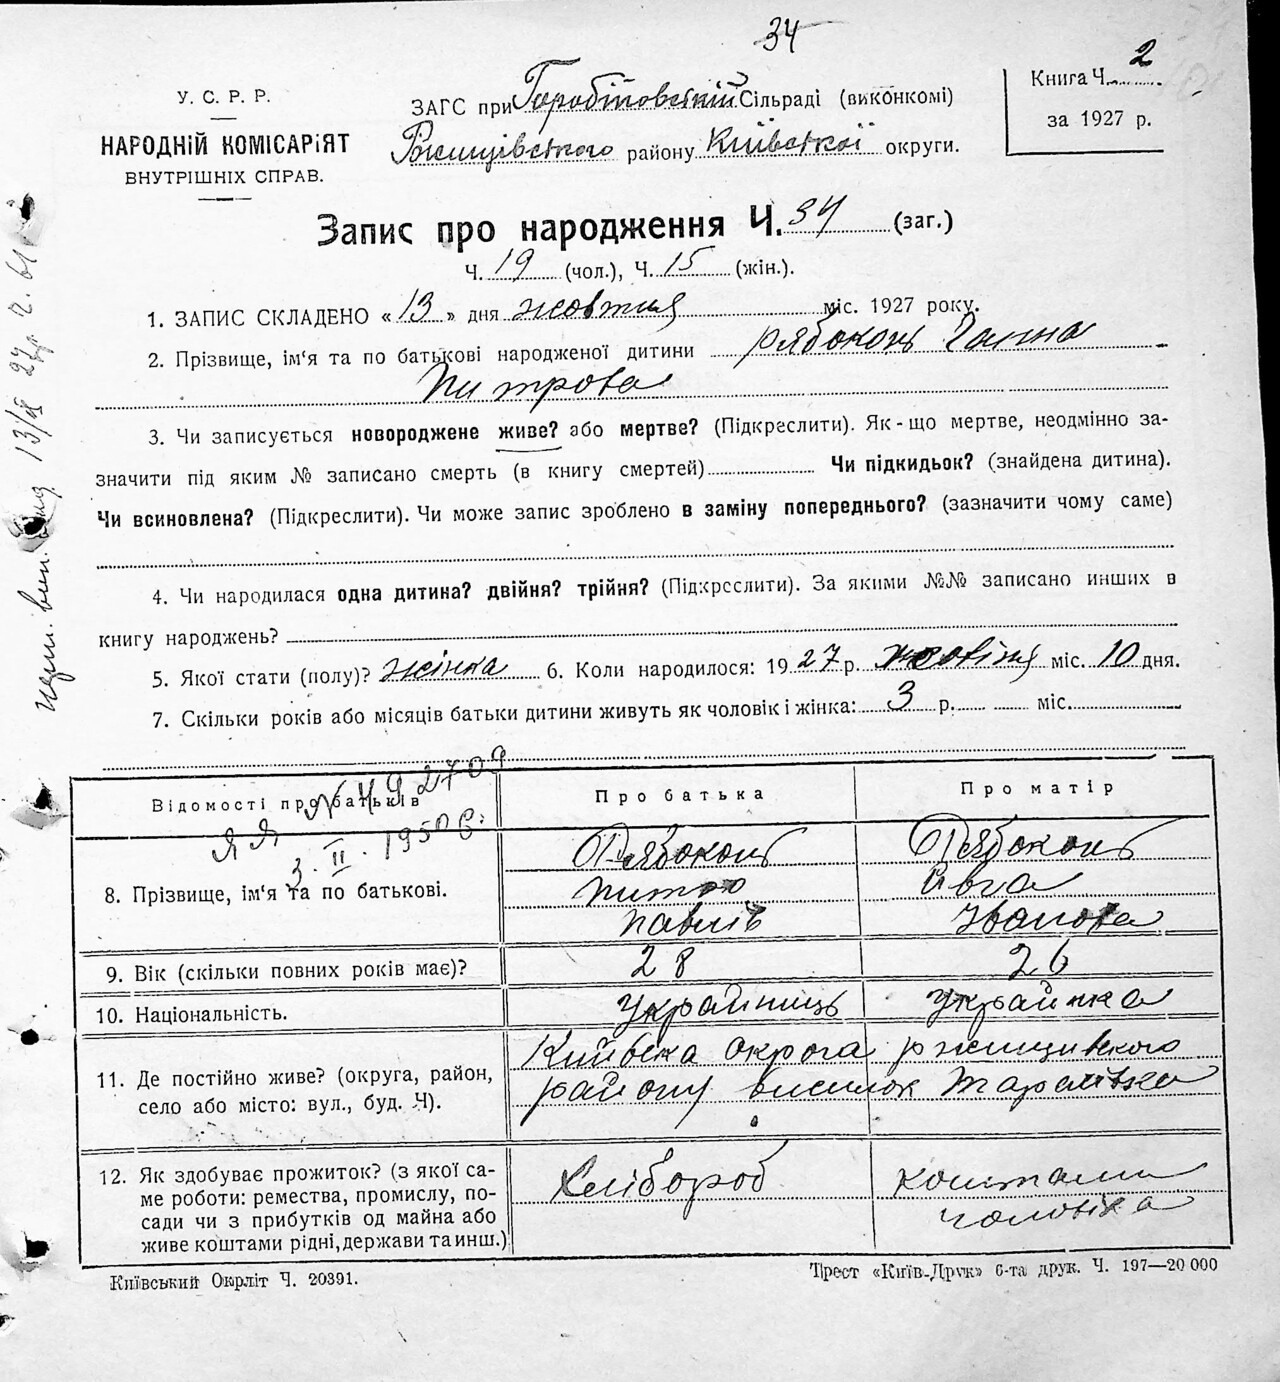 34
У. С. Р. Р.
НАРОДНІЙ КОМІСАРІЯТ
ВНУТРІШНІХ СПРАВ.
ЗАГС при Горобіївській Сільраді (виконкомі)
Ржищівського району Київської округи.
Книга Ч. 2
за 1927 р.
Запис про народження Ч. 34 (заг.)
Ч. 19 (чол.), Ч. 15 (жін.).
1. ЗАПИС СКЛАДЕНО «13» дня жовтня міс. 1927 року.
2. Прізвище, ім'я та по батькові народженої дитини Рябоконь Ганна
Питрова
3. Чи записується новороджене живе? або мертве? (Підкреслити). Як-що мертве, неодмінно за-
значити під яким № записано смерть (в книгу смертей) Чи підкидьок? (знайдена дитина).
Чи всиновлена? (Підкреслити). Чи може запис зроблено в заміну попереднього? (зазначити чому саме)
4. Чи народилася одна дитина? двійня? трійня? (Підкреслити). За якими №№ записано инших в
книгу народжень?
5. Якої стати (полу)? жінка 6. Коли народилося: 1927 р. жовтня міс. 10 дня.
7. Скільки років або місяців батьки дитини живуть як чоловік і жінка: 3 р. міс.
Відомості про батьків
Про батька
Про матір
ЯЯ № 492709
3. II. 1950 г.
8. Прізвище, ім'я та по батькові.
Рябоконь
Питро
Павлів
Рябоконь
Ивга
Іванова
9. Вік (скільки повних років має)?
28
26
10. Національність.
Українець
Українка
11. Де постійно живе? (округа, район,
село або місто: вул., буд. Ч).
Київска округа ржищивского
району висилок
12. Як здобуває прожиток? (з якої са-
ме роботи: ремества, промислу, по-
сади чи з прибутків од майна або
живе коштами рідні, держави та инш.)
Хлібороб
коштами
чоловіка
Київський Окрліт Ч. 20391.
Трест «Київ-Друк» 6-та друк. Ч. 197—20 000